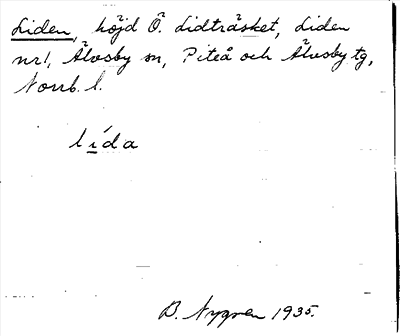 Liden, höjd Ö. Lidträsket, Liden
nr 1, Älvsby sn, Piteå och Älvsby tg,
Norrb. l.
lída
B. Nygren 1935.